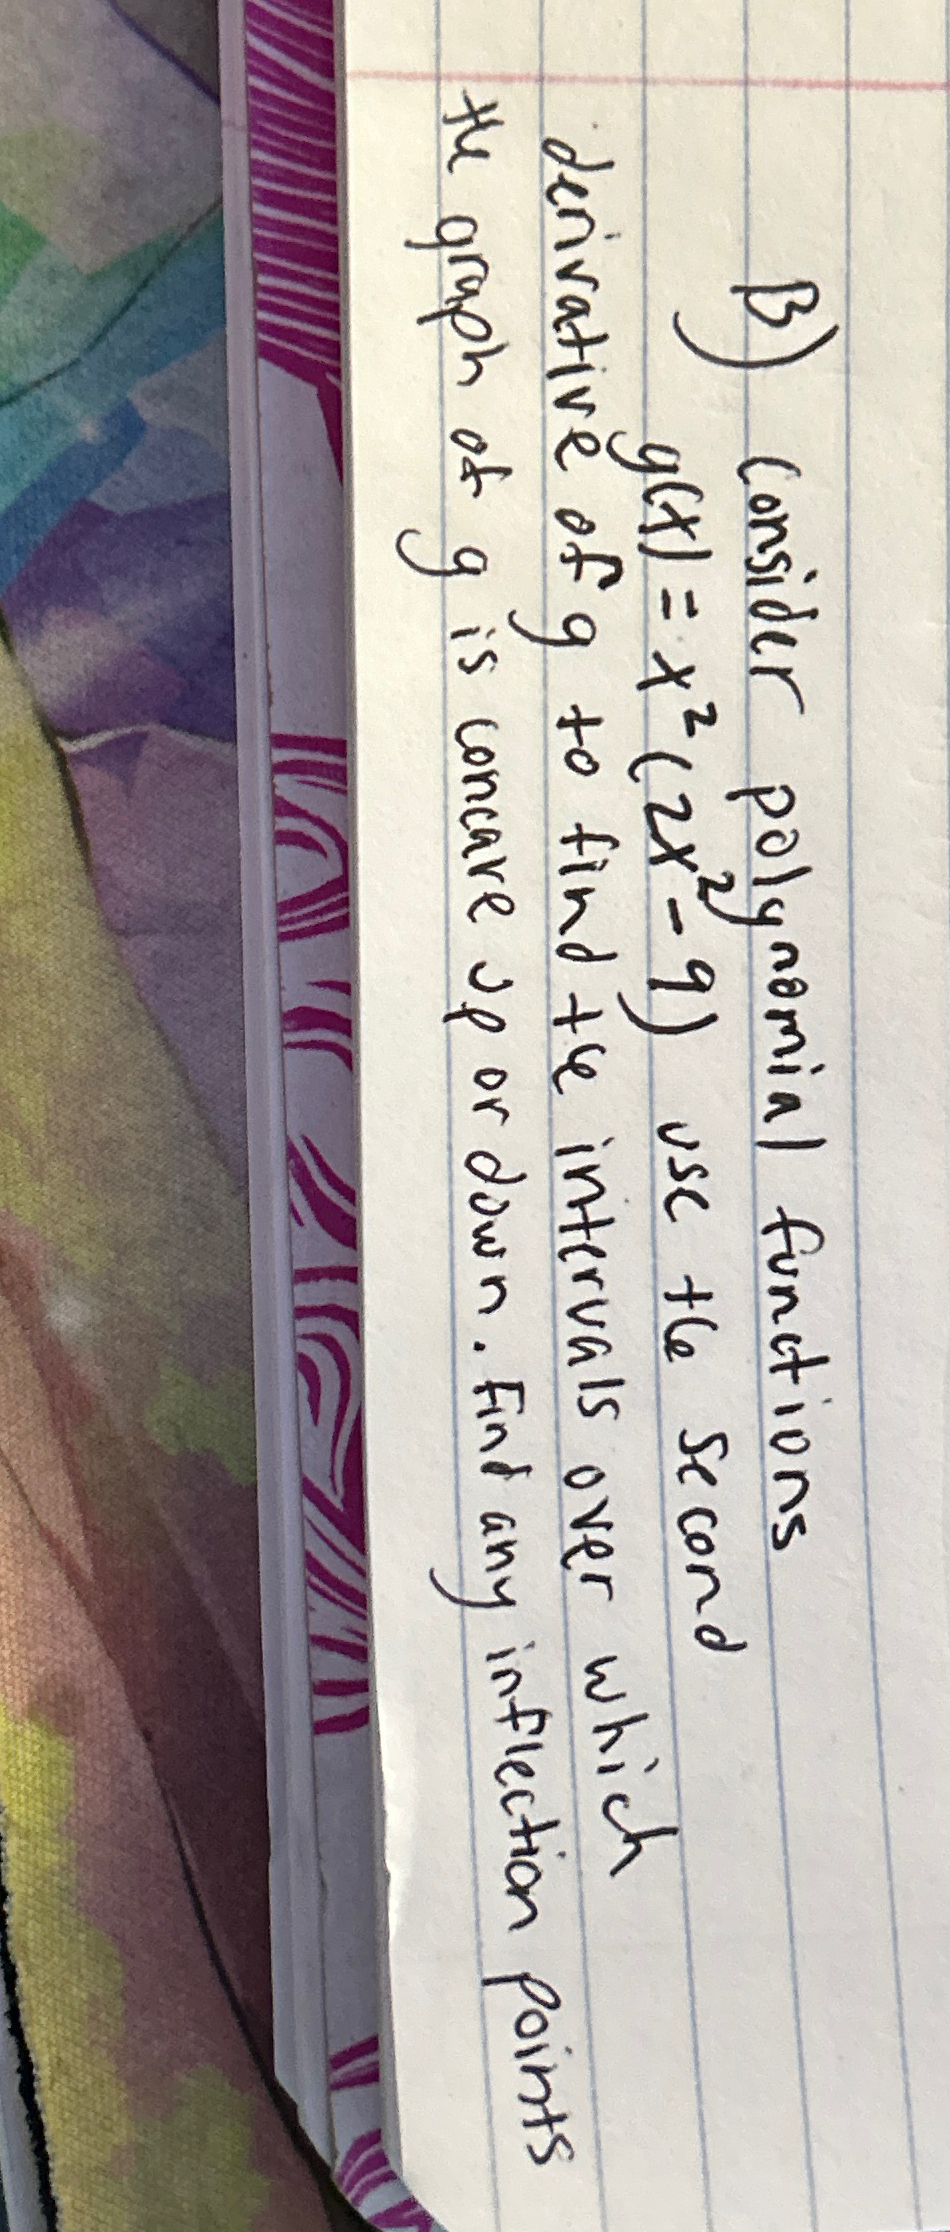 B) Consider polynomial functions
g(x) = x² (2x² - 9) use the second
derivative of g to find the intervals over which
the graph of g is concave up or down. Find any inflection points